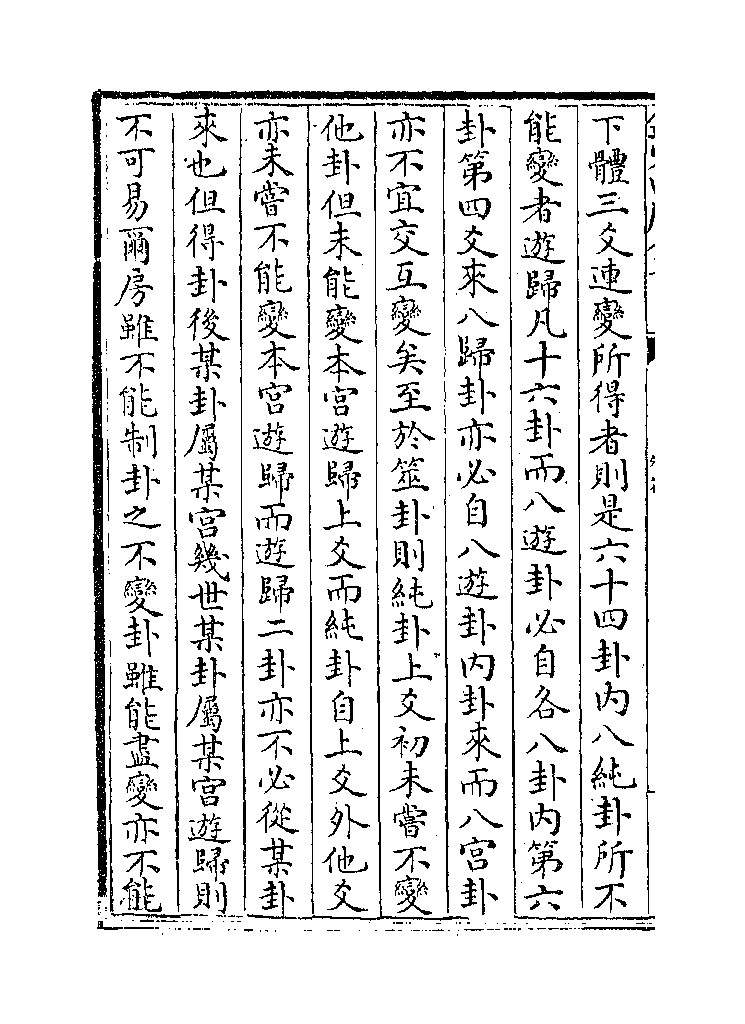 下體三爻連變所得者則是六十四卦内八純卦所不
能變者遊歸凡十六卦而八遊卦必自各八卦内第六
卦第四爻來八歸卦亦必自八遊卦内卦來而八宫卦
亦不宜交互變矣至於筮卦則純卦上爻初未嘗不變
他卦但未能變本宫遊歸上爻而純卦自上爻外他爻
亦未嘗不能變本宫遊歸而遊歸二卦亦不必從某卦
來也但得卦後某卦屬某宫幾世某卦屬某宫遊歸則
不可易爾房雖不能制卦之不變卦雖能盡變亦不能